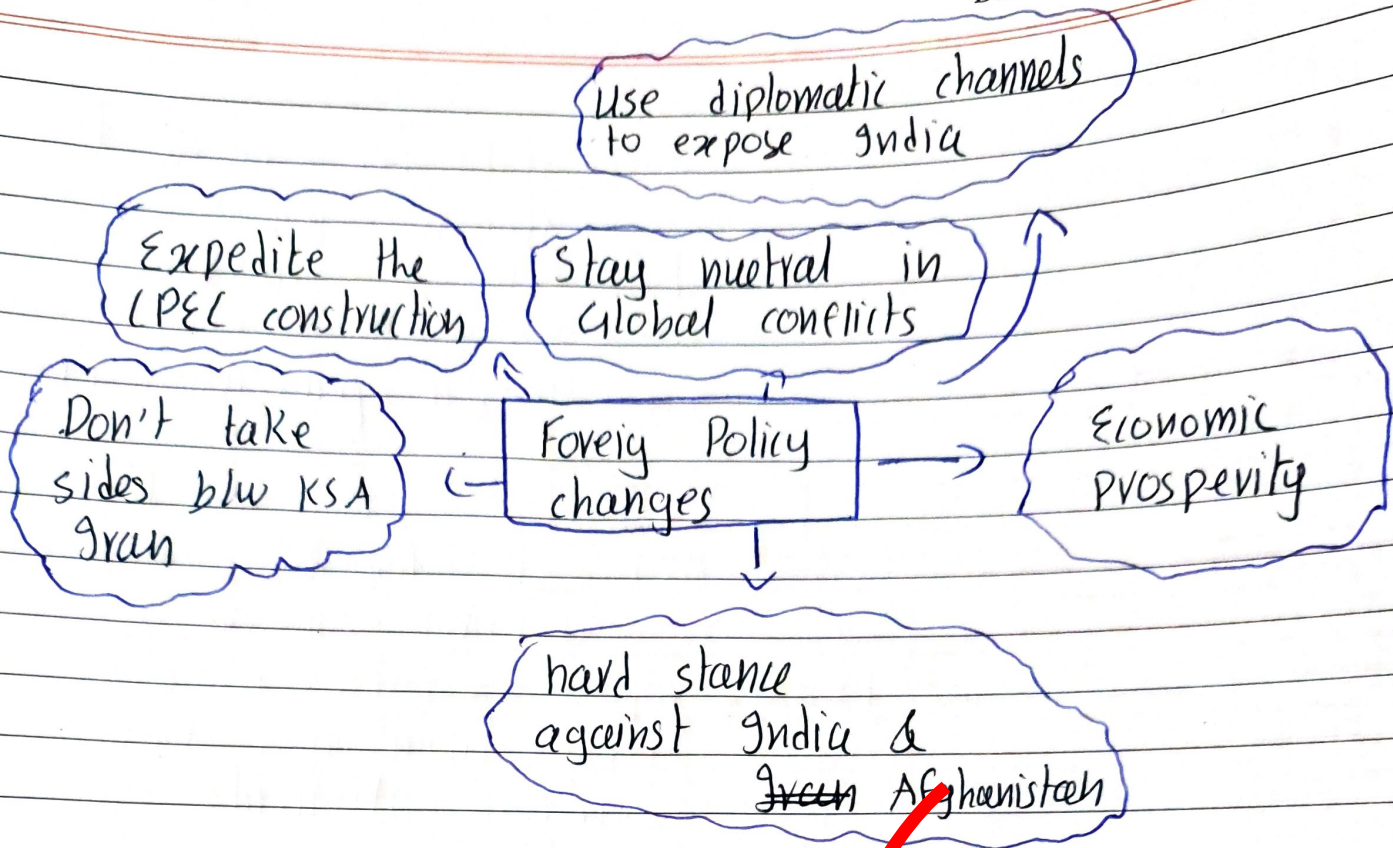 use diplomatic channels
to expose India
Expedite the
CPEC construction
Stay nuetral in
Global conflicts
Don't take
sides b/w KSA
Iran
Foreig Policy
changes
Economic
prosperity
hard stance
against India &
Iran Afghanistan